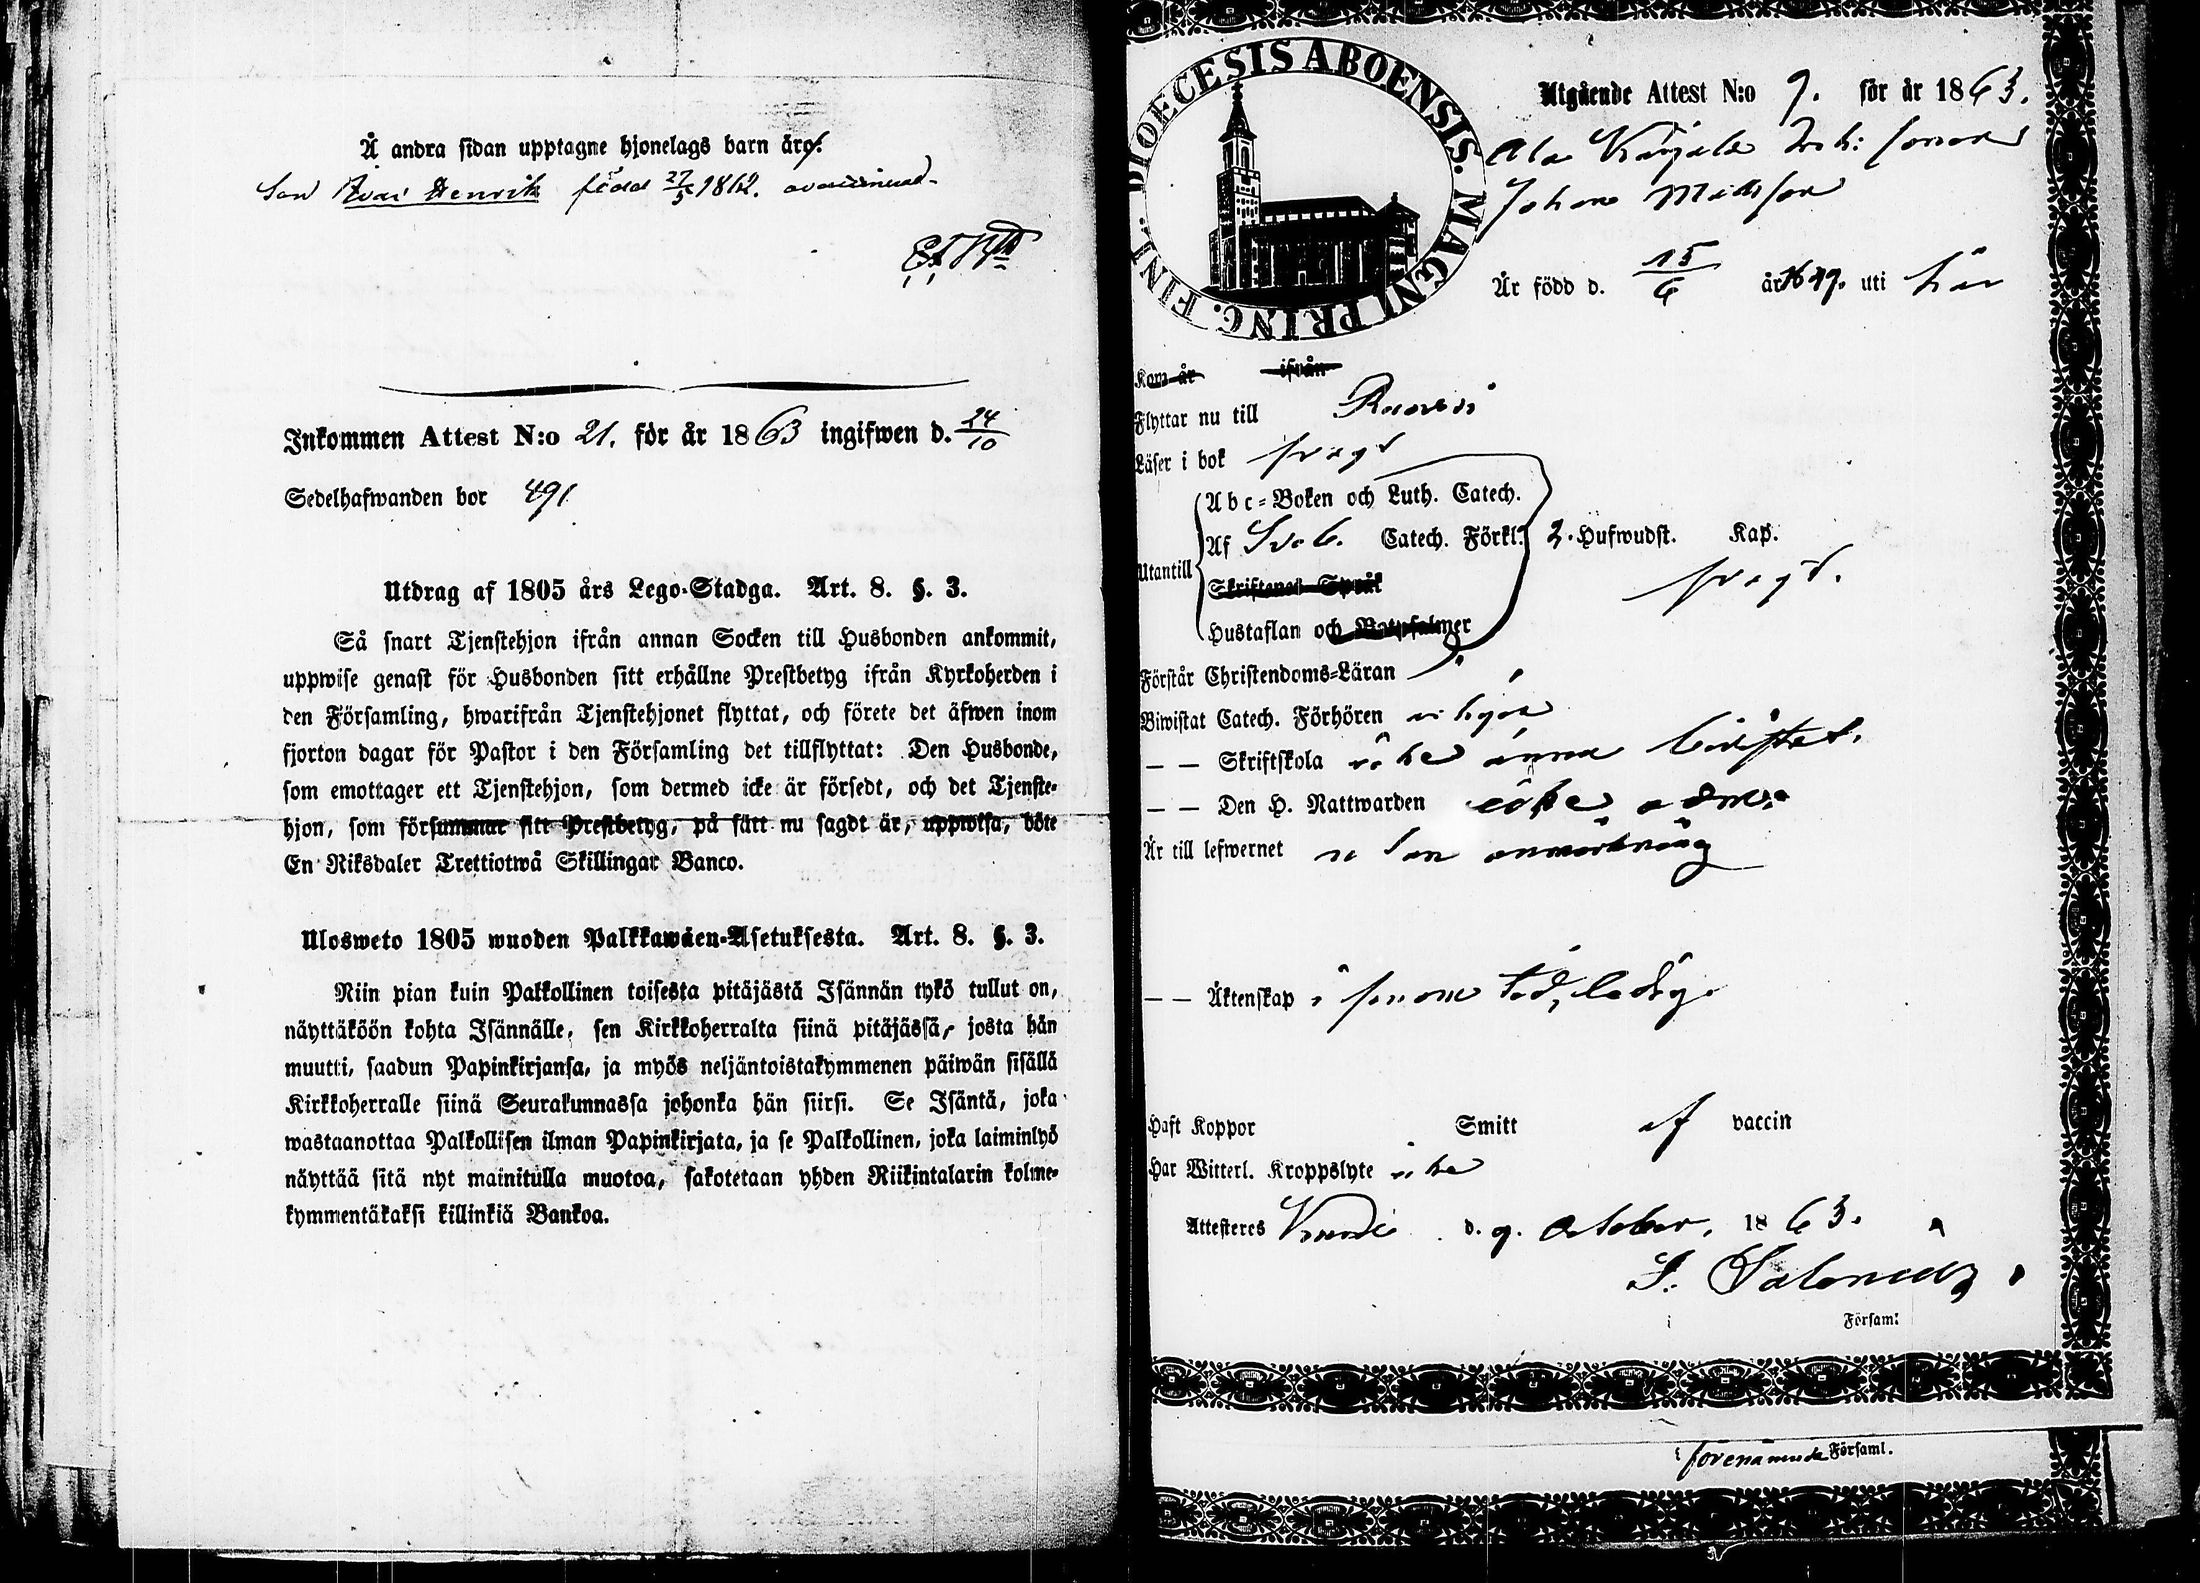 Å andra sidan upptagne hjonelags barn äro:
Son Henrik född 27/5 1862.
Inkommen Attest N:o 21. för år 1863 ingifwen d. 24/10
Sedelhafwanden bor 491
Utdrag af 1805 års Lego-Stadga. Art. 8. §. 3.
Så snart Tjenstehjon ifrån annan Socken till Husbonden ankommit,
uppwise genast för Husbonden sitt erhållne Prestbetyg ifrån Kyrkoherden i
den Församling, hwarifrån Tjenstehjonet flyttat, och förete det äfwen inom
fjorton dagar för Pastor i den Församling det tillflyttat: Den Husbonde,
som emottager ett Tjenstehjon, som dermed icke är försedt, och det Tjenste-
hjon, som försummar sitt Prestbetyg, på sätt nu sagdt är, uppwisa, böte
En Riksdaler Trettiotwå Skillingar Banco.
Ulosweto 1805 wuoden Palkkawäen-Asetuksesta. Art. 8. §. 3.
Niin pian kuin Palkollinen toisesta pitäjästä Isännän tykö tullut on,
näyttäköön kohta Isännälle, sen Kirkkoherralta siinä pitäjässä, josta hän
muutti, saadun Papinkirjansa, ja myös neljäntoistakymmenen päiwän sisällä
Kirkkoherralle siinä Seurakunnassa johonka hän siirsi. Se Isäntä, joka
wastaanottaa Palkollisen ilman Papinkirjata, ja se Palkollinen, joka laiminlyö
näyttää sitä nyt mainitulla muotoa, sakotetaan yhden Riikintalarin kolme-
kymmentäkaksi killinkiä Bankoa.
DIOECESIS ABOENSIS. MAGNI PRINC. FINL.
Utgående Attest N:o 9. för år 1863.
Ala sonen
Johan Matsson
Är född d. 15/6 år 1849. uti här
Kom år ifrån
Flyttar nu till
Läser i bok svagt
Utantill
Abc-Boken och Luth. Catech.
Af Sveb. Catech. Förkl. 2. Hufwudst. Kap.
Skriftenes Språk svagt.
Hustaflan och Botpsalmer
Förstår Christendoms-Läran
Biwistat Catech. Förhören
— — Skriftskola icke ännu bivistat.
— — Den H. Nattwarden icke adm.
Är till lefwernet utan anmärkning
— — Äktenskap i senare fall, ledig.
Haft Koppor Smitt af vaccin
Har Witterl. Kroppslyte icke
Attesteres d. 9. October, 1863.
Försam:
i förenämnda Församl.